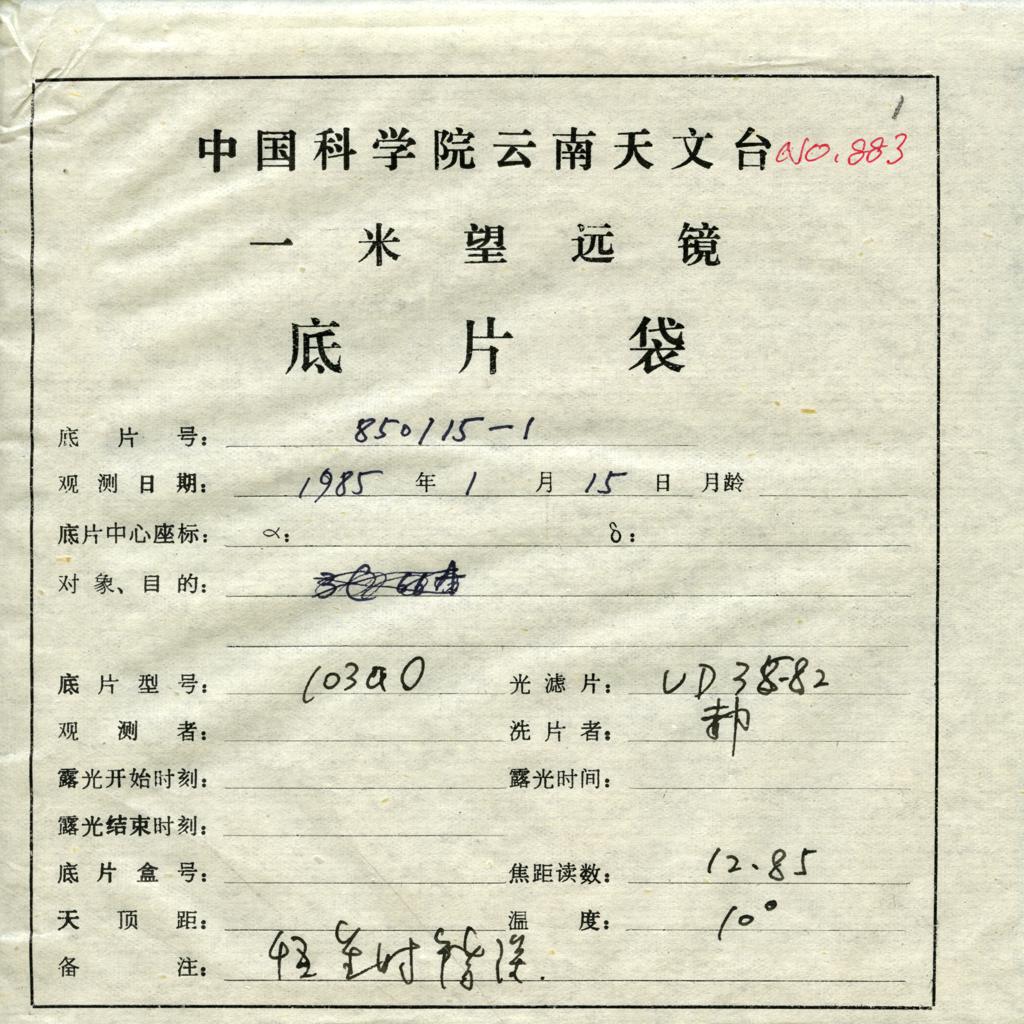 1
中国科学院云南天文台 NO.883
一米望远镜
底片袋
底片号：850115-1
观测日期：1985年1月15日 月龄
底片中心座标：α： δ：
对象、目的：
底片型号：103aO 光滤片：UD38-82
观测者： 洗片者：
露光开始时刻： 露光时间：
露光结束时刻：
底片盒号： 焦距读数：12.85
天顶距： 温度：10°
备注：恒星时错误.